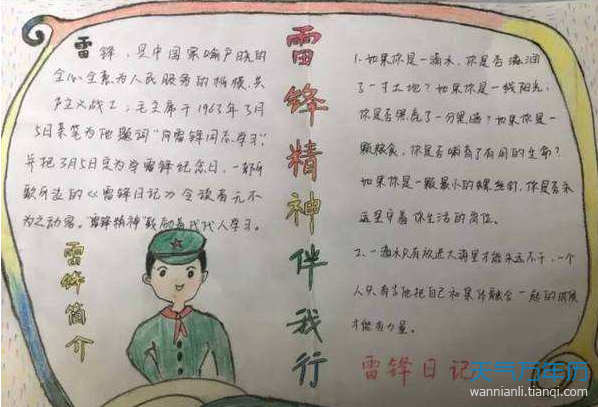 雷锋精神伴我行
雷锋，是中国家喻户晓的
全心全意为人民服务的楷模，共
产主义战士；毛主席于1963年3月
5日亲笔为他题词“向雷锋同志学习”，
并把3月5日定为学雷锋纪念日，一部
《雷锋日记》令读者无不
为之动容。“雷锋精神”激励着代代人学习。
雷锋简介
1.如果你是一滴水，你是否滋润
了一寸土地？如果你是一线阳光，
你是否照亮了一分黑暗？如果你是一
颗粮食，你是否哺育了有用的生命？
如果你是一颗最小的螺丝钉，你是否永
远坚守着你生活的岗位。
2.一滴水只有放进大海里才能永远不干，一个
人只有当他把自己和集体融合一起的时候
才能有力量。
雷锋日记
天气万年历
wannianli.tianqi.com